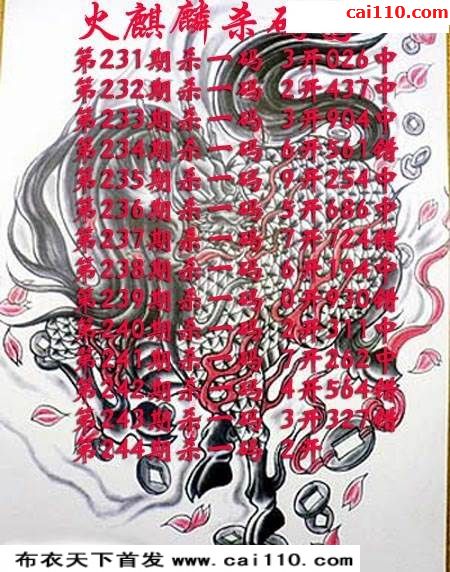 http://www.
cai110.com
火麒麟杀码
第231期杀一码 3开026中
第232期杀一码 2开437中
第233期杀一码 3开904中
第234期杀一码 6开561错
第235期杀一码 9开254中
第236期杀一码 5开686中
第237期杀一码 7开724错
第238期杀一码 6开194中
第239期杀一码 0开930错
第240期杀一码 2开311中
第241期杀一码 1开262中
第242期杀一码 4开564错
第243期杀一码 3开327错
第244期杀一码 2开
布衣天下首发 www.cai110.com